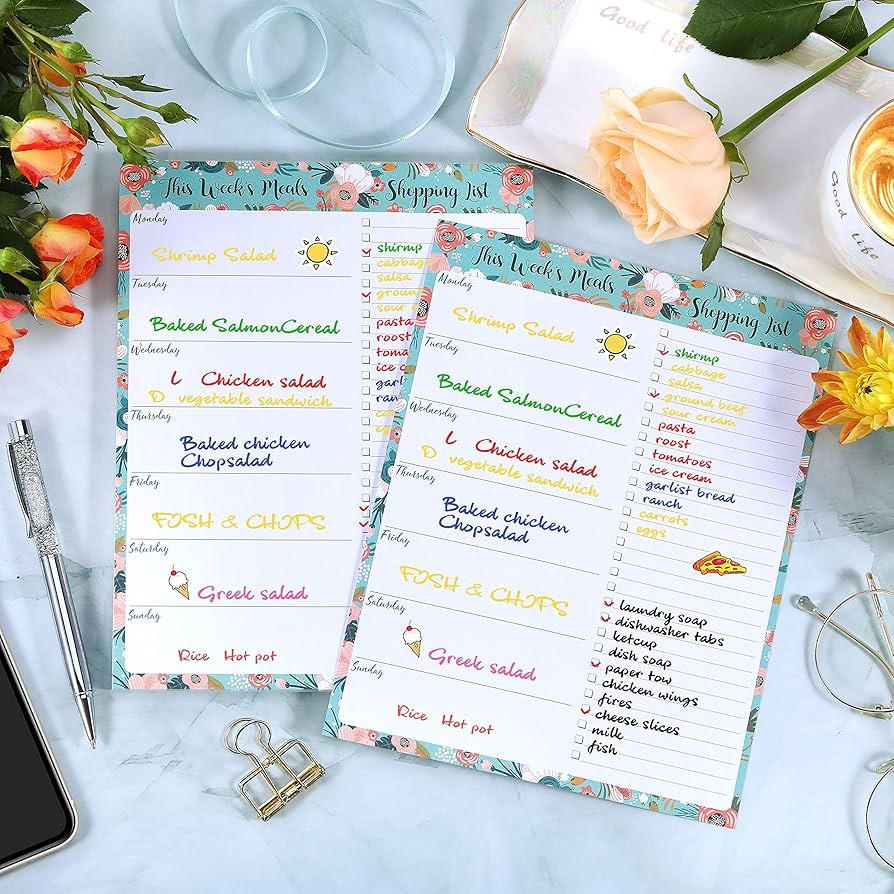 Good life
Good life
This Week's Meals
Shopping List
Monday
Shrimp Salad
Tuesday
Baked SalmonCereal
Wednesday
L Chicken salad
D vegetable sandwich
Thursday
Baked chicken
Chopsalad
Friday
FISH & CHIPS
Saturday
Greek salad
Sunday
Rice Hot pot
shirmp
cabbage
salsa
ground
sour
pasta
roost
ice
ranch
This Week's Meals
Shopping List
Monday
Shrimp Salad
Tuesday
Baked SalmonCereal
Wednesday
L Chicken salad
D vegetable sandwich
Thursday
Baked chicken
Chopsalad
Friday
FISH & CHIPS
Saturday
Greek salad
Sunday
Rice Hot pot
shirmp
cabbage
salsa
ground beef
sour cream
pasta
roost
tomatoes
ice cream
garlist bread
ranch
carrots
eggs
laundry soap
dishwasher tabs
ketcup
dish soap
paper tow
chicken wings
fires
cheese slices
milk
fish